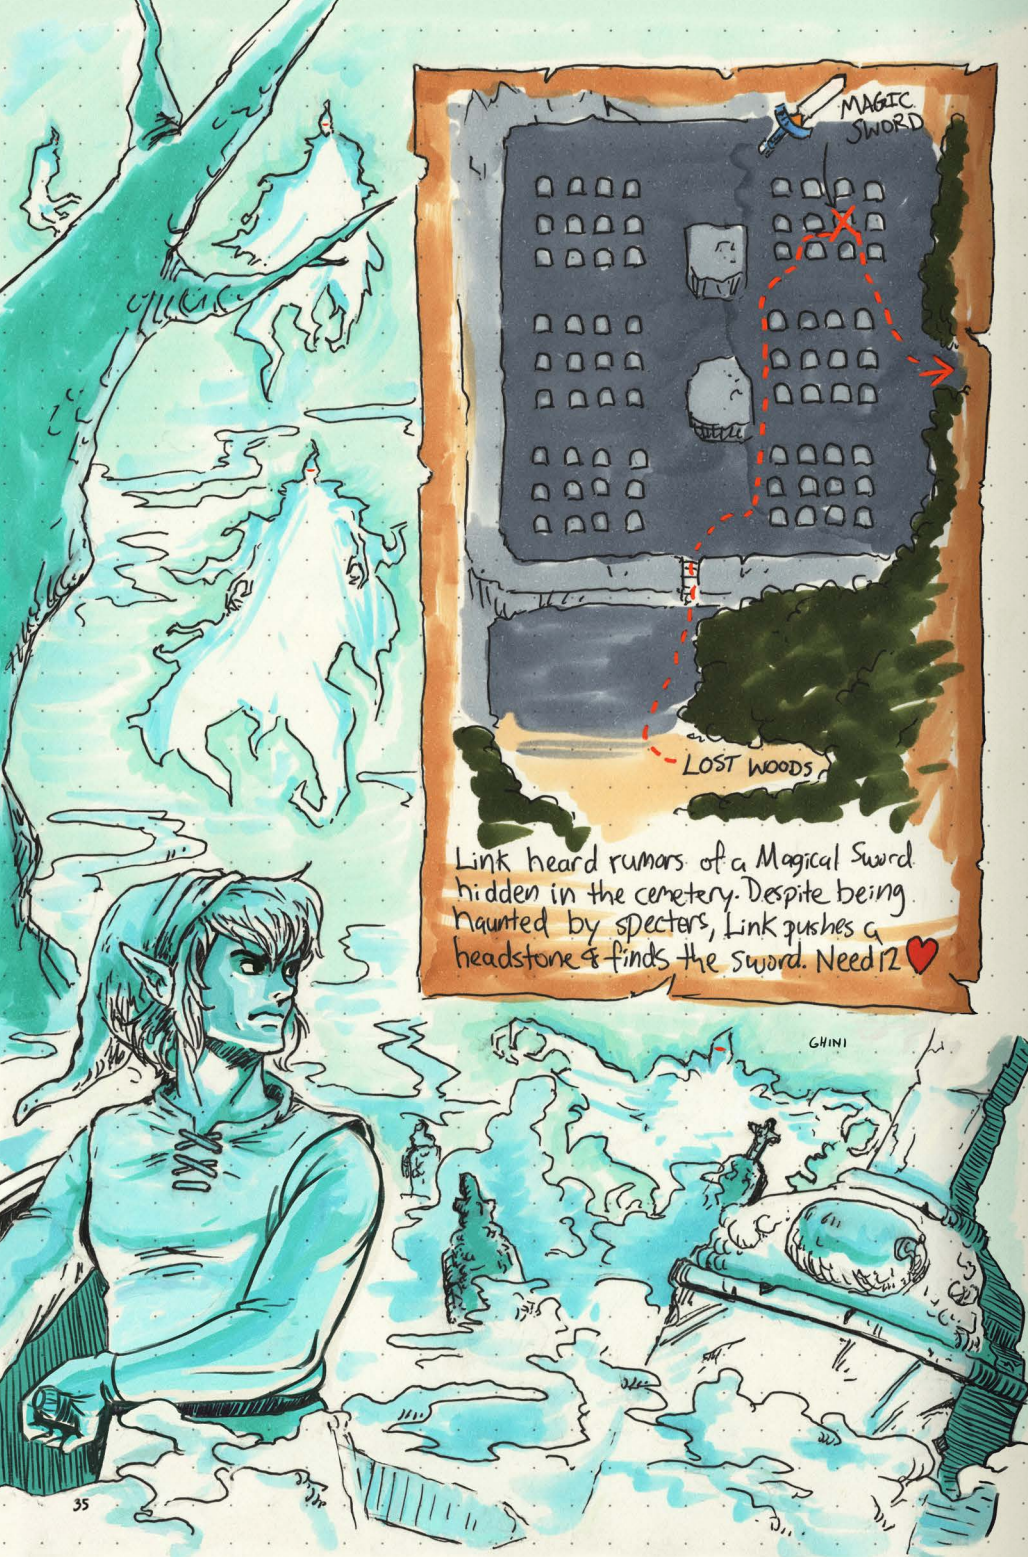 MAGIC
SWORD
LOST WOODS
Link heard rumors of a Magical Sword
hidden in the cemetery. Despite being
haunted by specters, Link pushes a
headstone & finds the sword. Need 12 ♥
GHINI
35